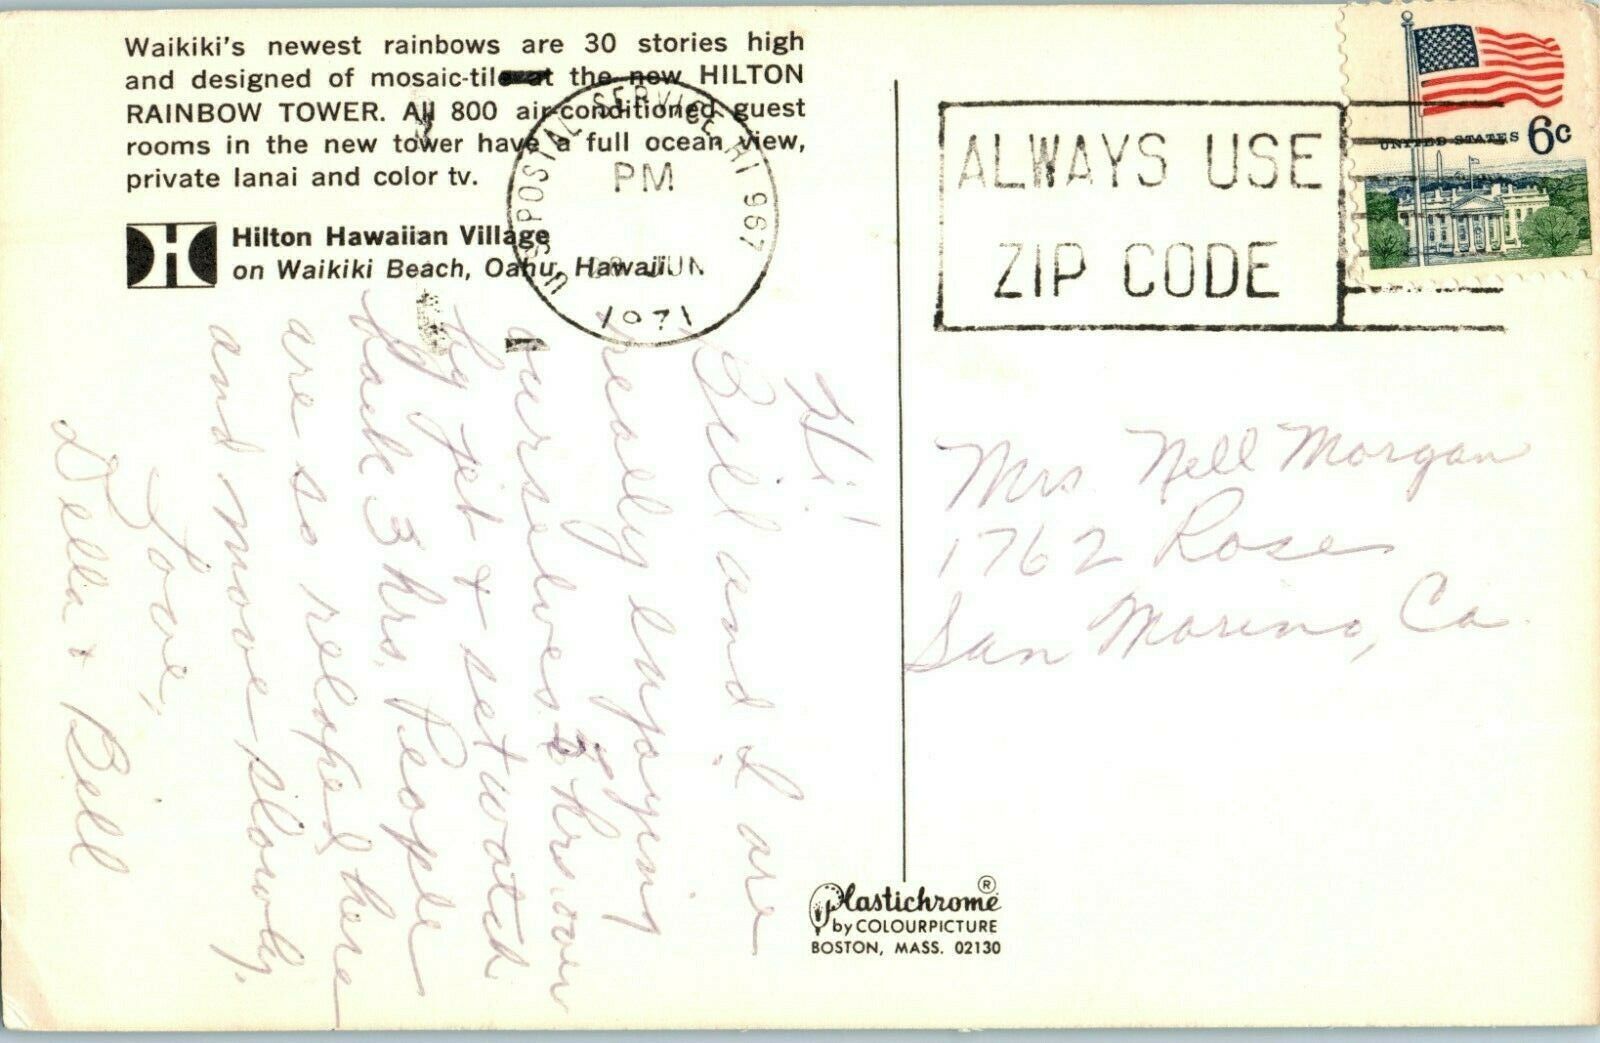 Waikiki's newest rainbows are 30 stories high
and designed of mosaic-tile at the new HILTON
RAINBOW TOWER. All 800 air-conditioned guest
rooms in the new tower have a full ocean view,
private lanai and color tv.
Hilton Hawaiian Village
on Waikiki Beach, Oahu, Hawaii.
U.S. POSTAL SERVICE HI 967
PM
JUN
1971
ALWAYS USE
ZIP CODE
UNITED STATES 6c
Hi!
Bill and I are
really enjoying
ourselves. 3 hrs over
by jet & set watch
back 3 hrs. People
are so relaxed here
and move slowly.
Love,
Della & Bill
Mrs Nell Morgan
1762 Rose
San Marino, Ca.
Plastichrome ®
by COLOURPICTURE
BOSTON, MASS. 02130